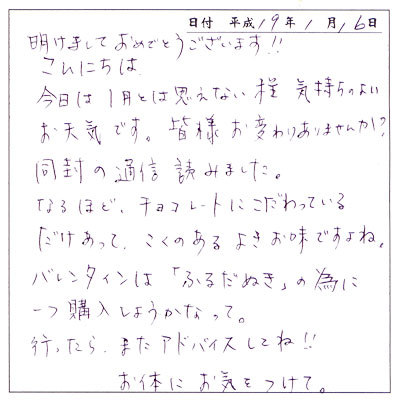 日付 平成19年1月16日
明けましておめでとうございます!!
こんにちは
今日は1月とは思えない程 気持ちのよい
お天気です。皆様お変わりありませんか!?
同封の通信読みました。
なるほど、チョコレートにこだわっている
だけあって、こくのあるよきお味ですよね。
バレンタインは「ふるだぬき」の為に
一つ購入しようかなって。
行ったら、またアドバイスしてね!!
お体にお気をつけて。